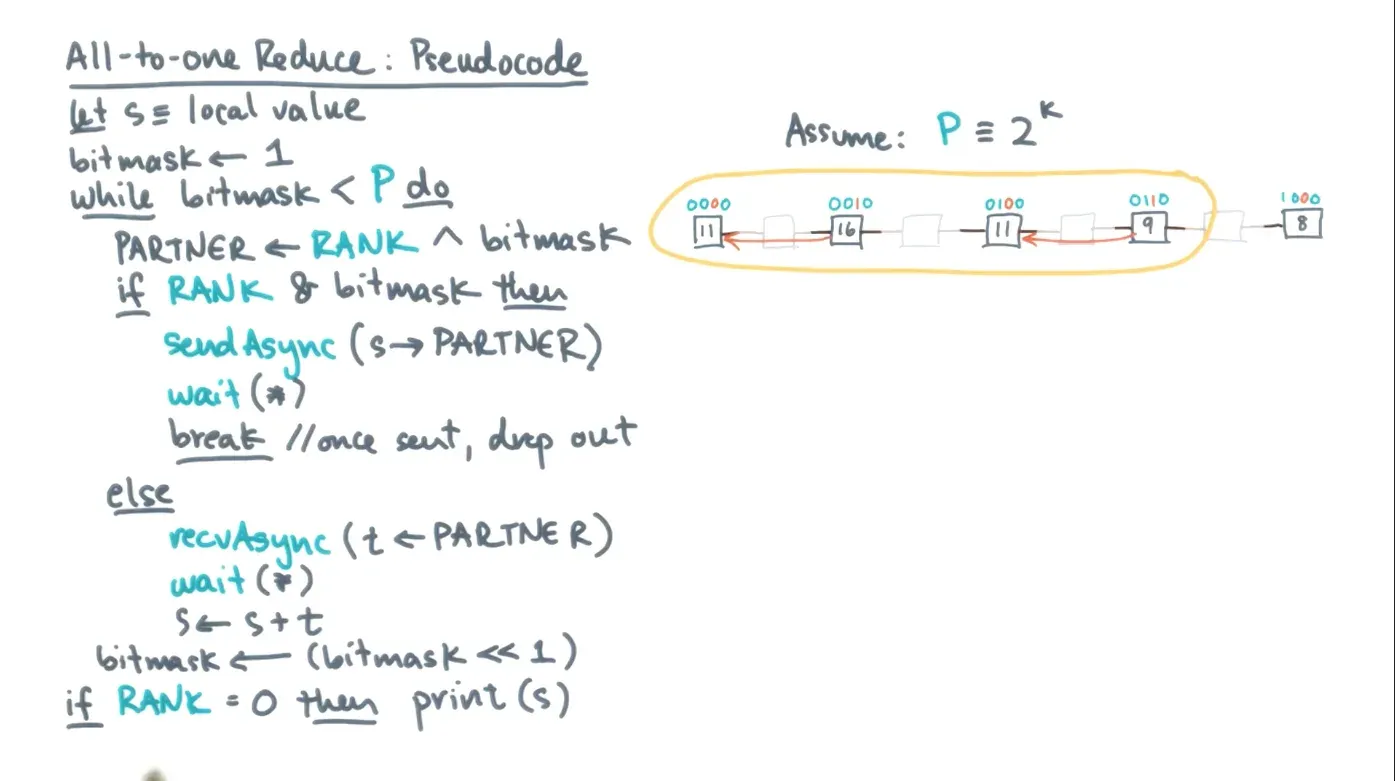 All-to-one Reduce: Pseudocode
let s ≡ local value
bitmask ← 1
while bitmask < P do
PARTNER ← RANK ^ bitmask
if RANK & bitmask then
sendAsync (s → PARTNER)
wait (*)
break // once sent, drop out
else
recvAsync (t ← PARTNER)
wait (*)
s ← s + t
bitmask ← (bitmask << 1)
if RANK = 0 then print (s)
Assume: P ≡ 2^k
0000 0010 0100 0110 1000
11 16 11 9 8